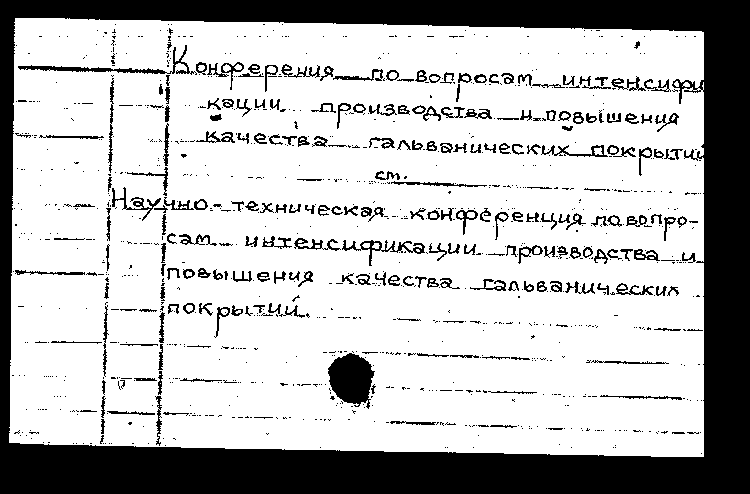 Конферения по вопросам интенсифи
кации производства и повышения
качества гальванических покрытий
см.
Научно-техническая конференция по вопро-
сам интенсификации производства и
повышения качества гальванических
покрытий.